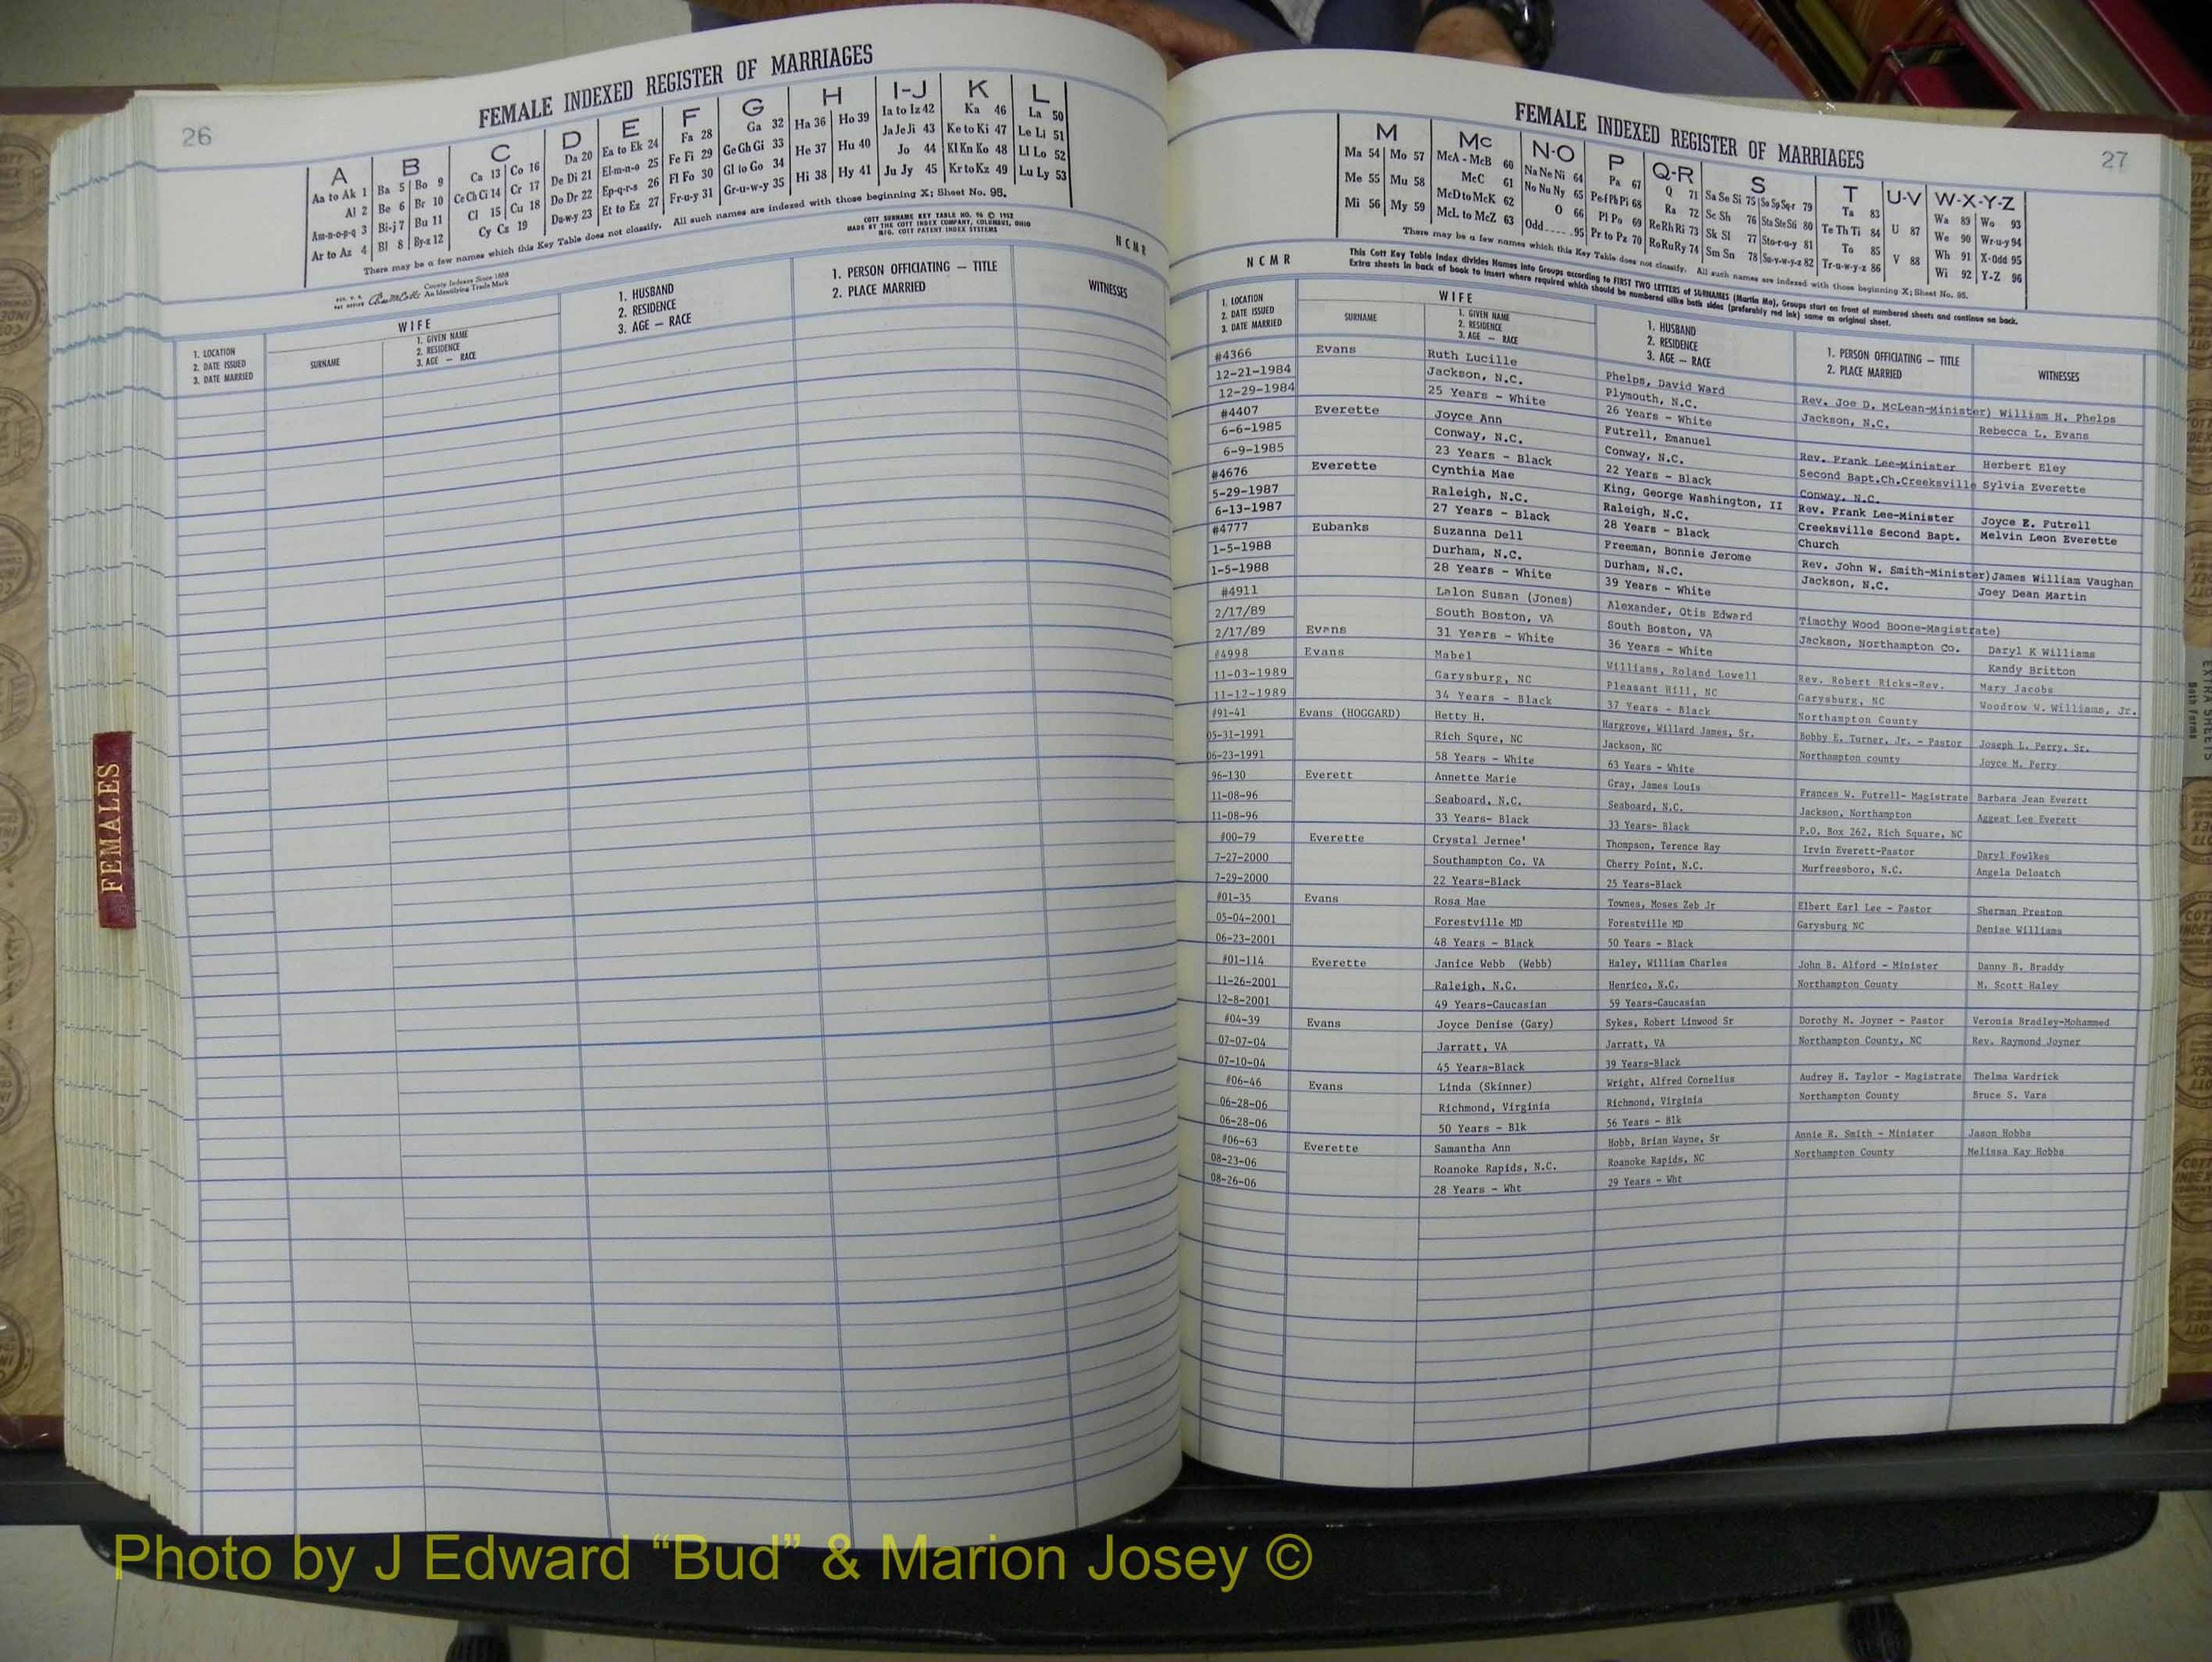 26
FEMALE INDEXED REGISTER OF MARRIAGES
A B C D E F G H I-J K L
Aa to Ak 1 Ba 5 Bo 9 Ca 13 Co 16 Da 20 Ea to Ek 24 Fa 28 Ga 32 Ha 36 Ho 39 Ia to Iz 42 Ka 46 La 50
Al 2 Be 6 Br 10 Ce Ch Ci 14 Cr 17 De Di 21 El-m-n-o 25 Fe Fi 29 Ge Gh Gi 33 He 37 Hu 40 Ja Je Ji 43 Ke to Ki 47 Le Li 51
Am-n-o-p-q 3 Bi-j 7 Bu 11 Cl 15 Cu 18 Do Dr 22 Ep-q-r-s 26 Fl Fo 30 Gl to Go 34 Hi 38 Hy 41 Jo 44 Kl Kn Ko 48 Ll Lo 52
Ar to Az 4 Bl 8 By-z 12 Cy Cz 19 Du-w-y 23 Et to Ez 27 Fr-u-y 31 Gr-u-w-y 35 Ju Jy 45 Kr to Kz 49 Lu Ly 53
There may be a few names which this Key Table does not classify. All such names are indexed with those beginning X; Sheet No. 95.
COTT SURNAME KEY TABLE NO. 96 © 1952
MADE BY THE COTT INDEX COMPANY, COLUMBUS, OHIO
MFG. COTT PATENT INDEX SYSTEMS
NCMR
County Indexes Since 1888
An Identifying Trade Mark
1. LOCATION
2. DATE ISSUED
3. DATE MARRIED
WIFE
SURNAME
1. GIVEN NAME
2. RESIDENCE
3. AGE — RACE
1. HUSBAND
2. RESIDENCE
3. AGE — RACE
1. PERSON OFFICIATING — TITLE
2. PLACE MARRIED
WITNESSES
FEMALES
FEMALE INDEXED REGISTER OF MARRIAGES
27
M Mc N-O P Q-R S T U-V W-X-Y-Z
Ma 54 Mo 57 McA - McB 60 Na Ne Ni 64 Pa 67 Q 71 Sa Se Si 75 So Sp Sq-r 79 Ta 83 U 87 Wa 89 Wo 93
Me 55 Mu 58 McC 61 No Nu Ny 65 Pe-f Ph Pi 68 Ra 72 Sc Sh 76 Sta Ste Sti 80 Te Th Ti 84 V 88 We 90 Wr-u-y 94
Mi 56 My 59 McD to McK 62 O 66 Pl Po 69 Re Rh Ri 73 Sk Sl 77 Sto-r-u-y 81 To 85 Wh 91 X-Odd 95
McL to McZ 63 Odd 95 Pr to Pz 70 Ro Ru Ry 74 Sm Sn 78 Su-v-w-y-z 82 Tr-u-w-y-z 86 Wi 92 Y-Z 96
There may be a few names which this Key Table does not classify. All such names are indexed with those beginning X; Sheet No. 95.
NCMR
This Cott Key Table Index divides Names into Groups according to FIRST TWO LETTERS of SURNAMES (Martin Ma), Groups start on front of numbered sheets and continue on back.
Extra sheets in back of book to insert where required which should be numbered alike both sides (preferably red ink) same as original sheet.
1. LOCATION
2. DATE ISSUED
3. DATE MARRIED
WIFE
SURNAME
1. GIVEN NAME
2. RESIDENCE
3. AGE — RACE
1. HUSBAND
2. RESIDENCE
3. AGE — RACE
1. PERSON OFFICIATING — TITLE
2. PLACE MARRIED
WITNESSES
#4366 Evans Ruth Lucille Phelps, David Ward Rev. Joe D. McLean-Minister) William H. Phelps
12-21-1984 Jackson, N.C. Plymouth, N.C. Jackson, N.C. Rebecca L. Evans
12-29-1984 25 Years - White 26 Years - White
#4407 Everette Joyce Ann Futrell, Emanuel Rev. Frank Lee-Minister Herbert Eley
6-6-1985 Conway, N.C. Conway, N.C. Second Bapt.Ch.Creeksville Sylvia Everette
6-9-1985 23 Years - Black 22 Years - Black Conway, N.C.
#4676 Everette Cynthia Mae King, George Washington, II Rev. Frank Lee-Minister Joyce E. Futrell
5-29-1987 Raleigh, N.C. Raleigh, N.C. Creeksville Second Bapt. Melvin Leon Everette
6-13-1987 27 Years - Black 28 Years - Black Church
#4777 Eubanks Suzanna Dell Freeman, Bonnie Jerome Rev. John W. Smith-Minister) James William Vaughan
1-5-1988 Durham, N.C. Durham, N.C. Jackson, N.C. Joey Dean Martin
1-5-1988 28 Years - White 39 Years - White
#4911 Lalon Susan (Jones) Alexander, Otis Edward Timothy Wood Boone-Magistrate)
2/17/89 South Boston, VA South Boston, VA Jackson, Northampton Co. Daryl K Williams
2/17/89 Evans 31 Years - White 36 Years - White Kandy Britton
#4998 Evans Mabel Williams, Roland Lowell Rev. Robert Ricks-Rev. Mary Jacobs
11-03-1989 Garysburg, NC Pleasant Hill, NC Garysburg, NC Woodrow W. Williams, Jr.
11-12-1989 34 Years - Black 37 Years - Black Northampton County
#91-41 Evans (HOGGARD) Hetty H. Hargrove, Willard James, Sr. Bobby E. Turner, Jr. - Pastor Joseph L. Perry, Sr.
05-31-1991 Rich Squre, NC Jackson, NC Northampton county Joyce M. Perry
06-23-1991 58 Years - White 63 Years - White
96-130 Everett Annette Marie Gray, James Louis Frances W. Futrell- Magistrate Barbara Jean Everett
11-08-96 Seaboard, N.C. Seaboard, N.C. Jackson, Northampton Aggest Lee Everett
11-08-96 33 Years- Black 33 Years- Black P.O. Box 262, Rich Square, NC
#00-79 Everette Crystal Jernee' Thompson, Terence Ray Irvin Everett-Pastor Daryl Fowlkes
7-27-2000 Southampton Co. VA Cherry Point, N.C. Murfreesboro, N.C. Angela Deloatch
7-29-2000 22 Years-Black 25 Years-Black
#01-35 Evans Rosa Mae Townes, Moses Zeb Jr Elbert Earl Lee - Pastor Sherman Preston
05-04-2001 Forestville MD Forestville MD Garysburg NC Denise Williams
06-23-2001 48 Years - Black 50 Years - Black
#01-114 Everette Janice Webb (Webb) Haley, William Charles John B. Alford - Minister Danny B. Braddy
11-26-2001 Raleigh, N.C. Henrico, N.C. Northampton County M. Scott Haley
12-8-2001 49 Years-Caucasian 59 Years-Caucasian
#04-39 Evans Joyce Denise (Gary) Sykes, Robert Linwood Sr Dorothy M. Joyner - Pastor Veronia Bradley-Mohammed
07-07-04 Jarratt, VA Jarratt, VA Northampton County, NC Rev. Raymond Joyner
07-10-04 45 Years-Black 39 Years-Black
#06-46 Evans Linda (Skinner) Wright, Alfred Cornelius Audrey H. Taylor - Magistrate Thelma Wardrick
06-28-06 Richmond, Virginia Richmond, Virginia Northampton County Bruce S. Vara
06-28-06 50 Years - Blk 56 Years - Blk
#06-63 Everette Samantha Ann Hobb, Brian Wayne, Sr Annie R. Smith - Minister Jason Hobbs
08-23-06 Roanoke Rapids, N.C. Roanoke Rapids, NC Northampton County Melissa Kay Hobbs
08-26-06 28 Years - Wht 29 Years - Wht
EXTRA SHEETS
Photo by J Edward “Bud” & Marion Josey ©